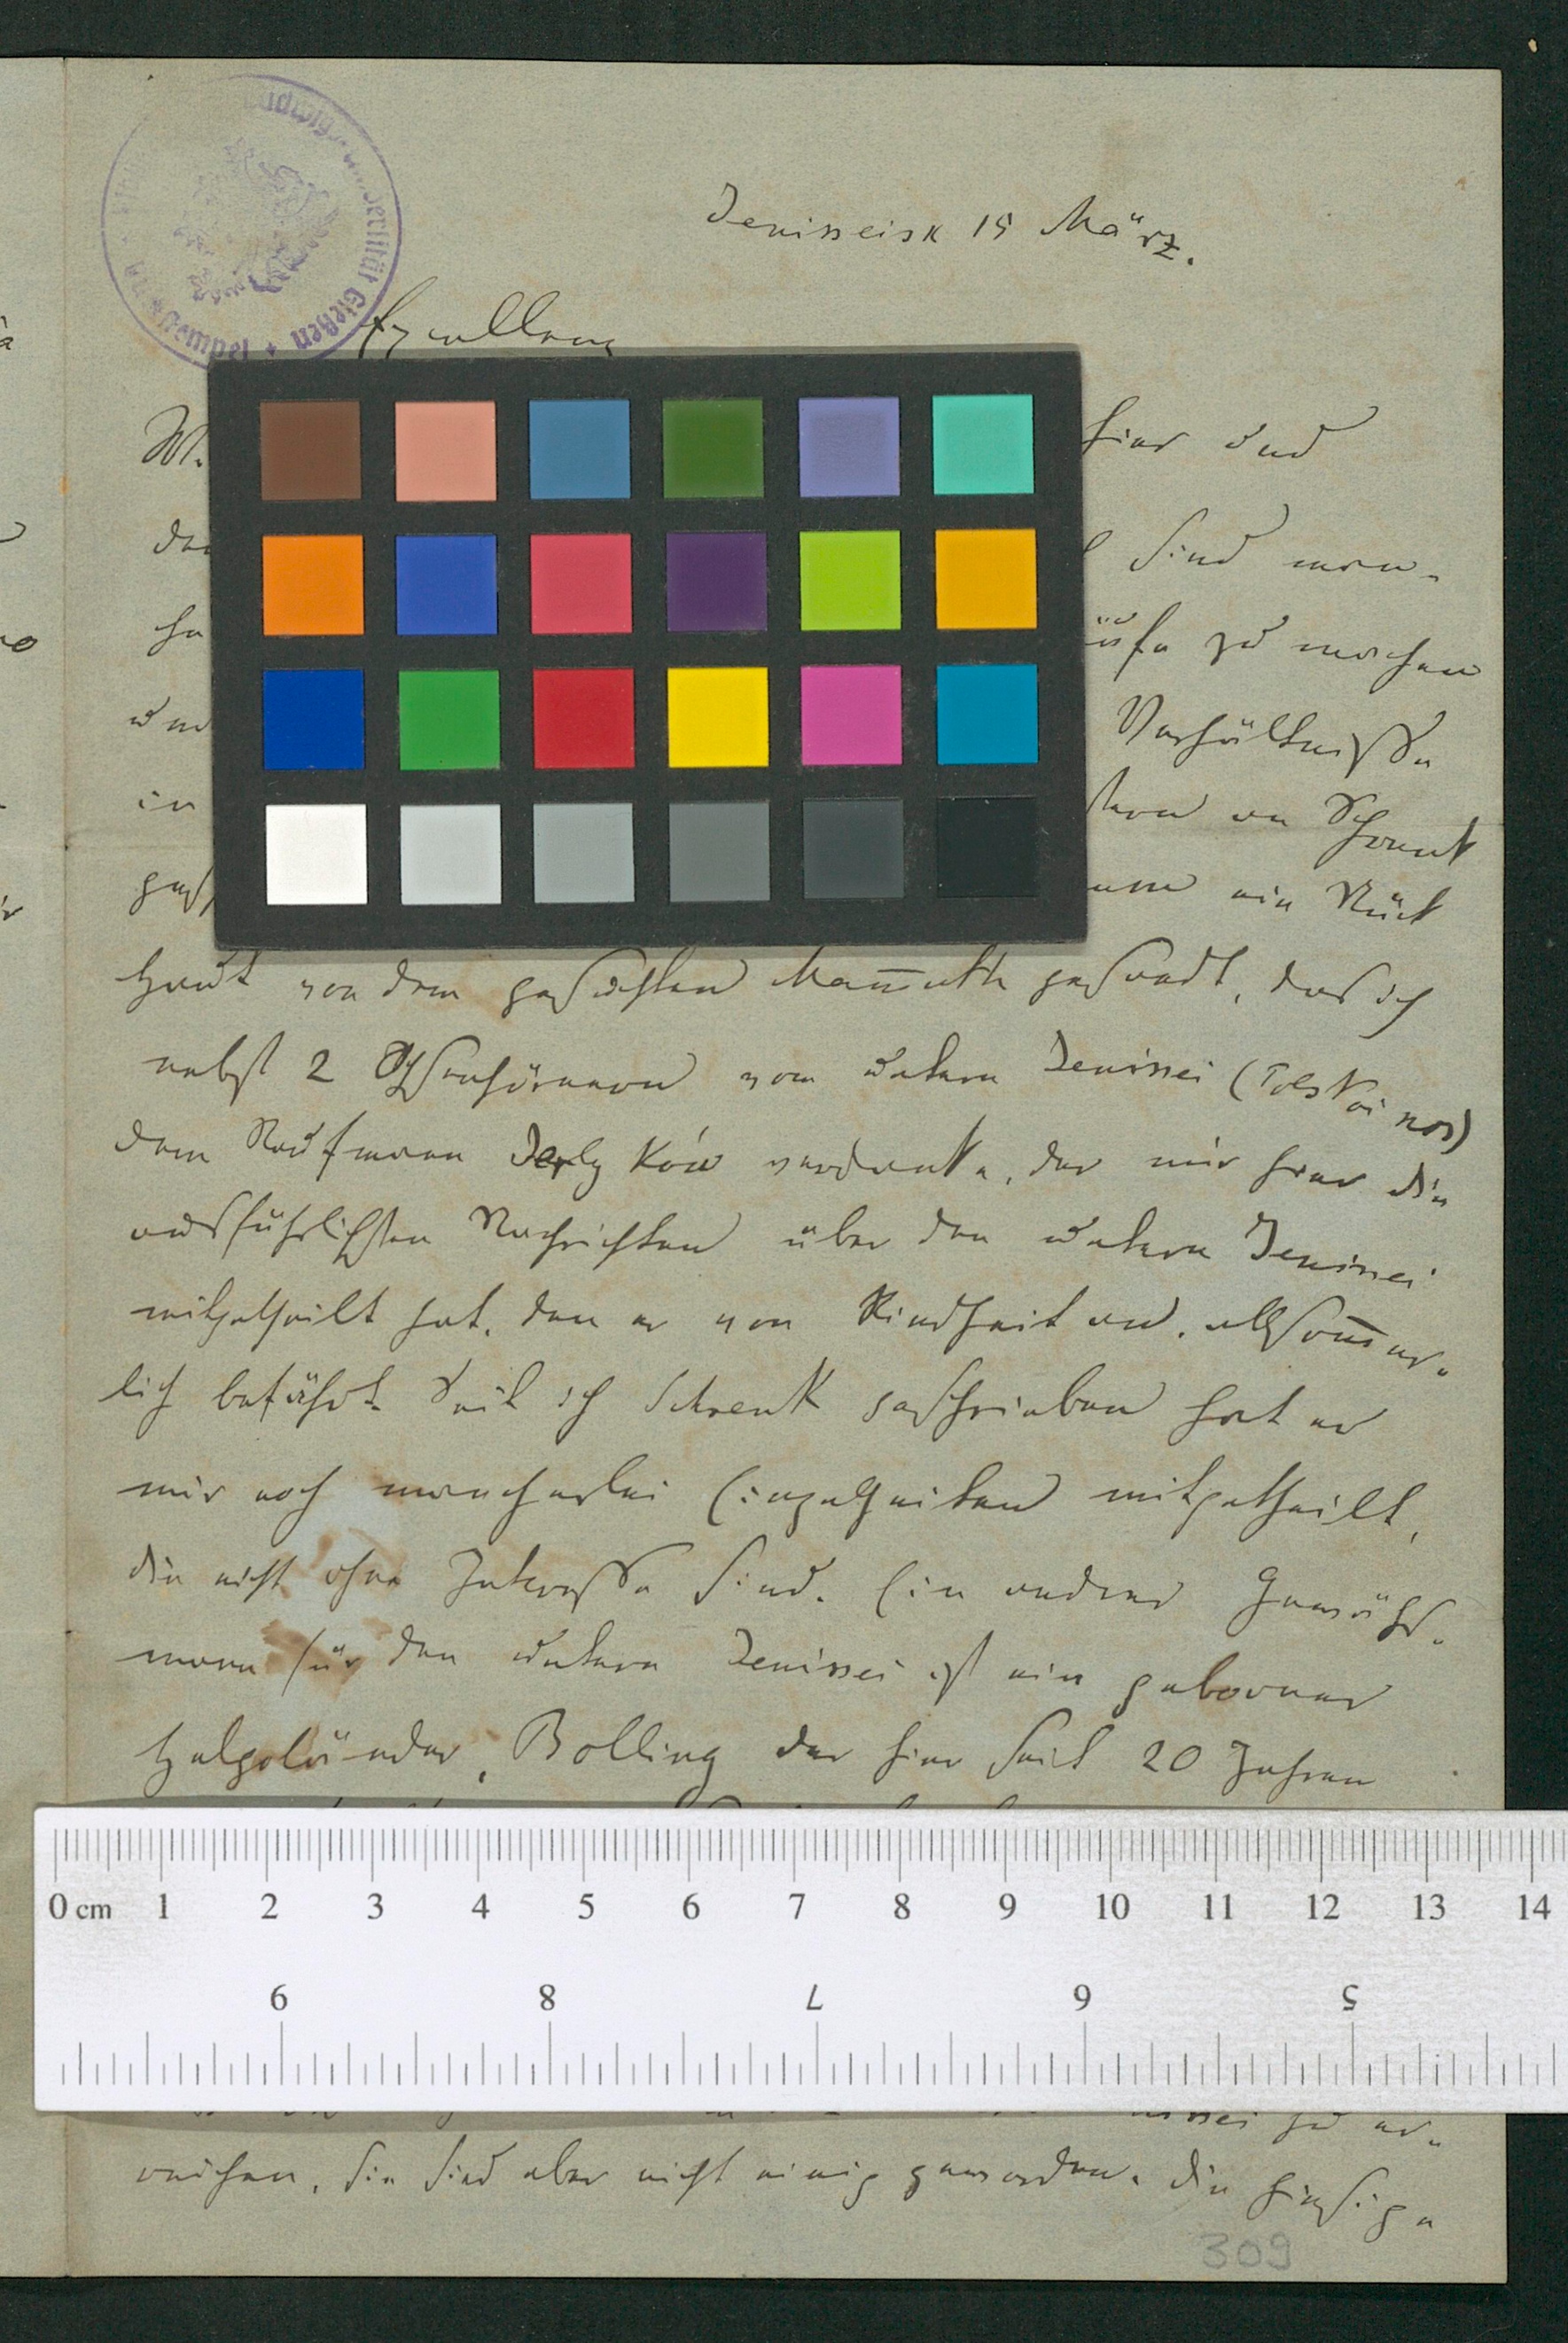 Jenisseisk 15 März.
Excellenz
hier und
sind man-
zu machen
und
Verhältnisse
in
an Schrenk
ein Stück
Haut von dem gesuchten Mam̅uth gesandt, das ich
nebst 2 Ochsenhörnern vom untern Jenissei (Tolstoi nos)
dem Kaufmann verdanke, der mir hier die
ausführlichsten Nachrichten über den untern Jenissei
mitgetheilt hat, den er von Kindheit an, allsom̅er-
lich befährt. Seit ich Schrenk geschrieben hat er
mir noch mancherlei Einzelheiten mitgetheilt,
die nicht ohne Interesse sind. Ein andrer Gewährs-
mann für den untern Jenissei ist ein geborner
Helgoländer, Bolling der hier seit 20 Jahren
zu er-
reichen, sie sind aber nicht einig geworden. Die hiesige
309
0 cm 1 2 3 4 5 6 7 8 9 10 11 12 13 14
9 8 7 6 5